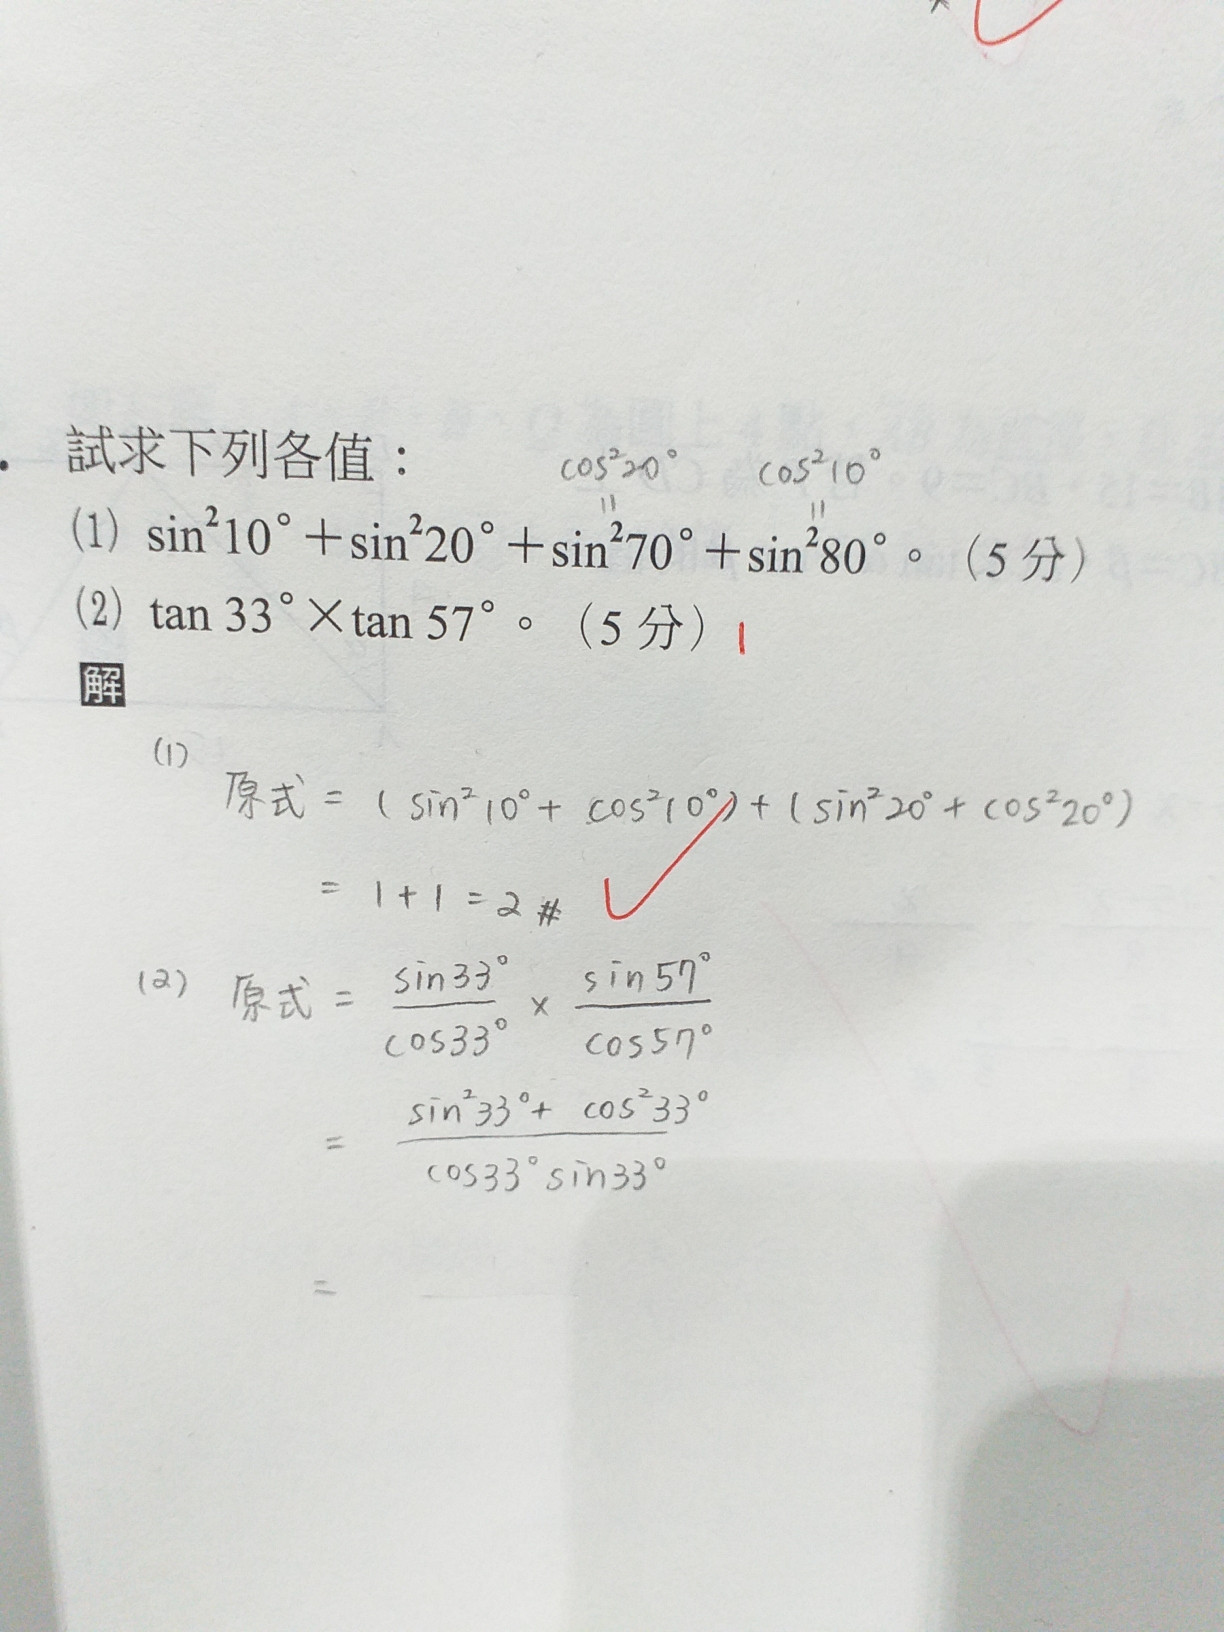 cos²20° cos²10°
試求下列各值：
= =
(1) sin²10°＋sin²20°＋sin²70°＋sin²80°。（5 分）
(2) tan 33°×tan 57°。（5 分） 1
解
(1)
原式 = (sin²10° + cos²10°) + (sin²20° + cos²20°)
= 1 + 1 = 2 #
(2) 原式 = sin33°/cos33° × sin57°/cos57°
= sin²33° + cos²33° / cos33° sin33°
=